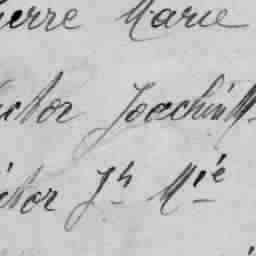 ierre Marie
ictor Joachin M
ictor Jh Mie